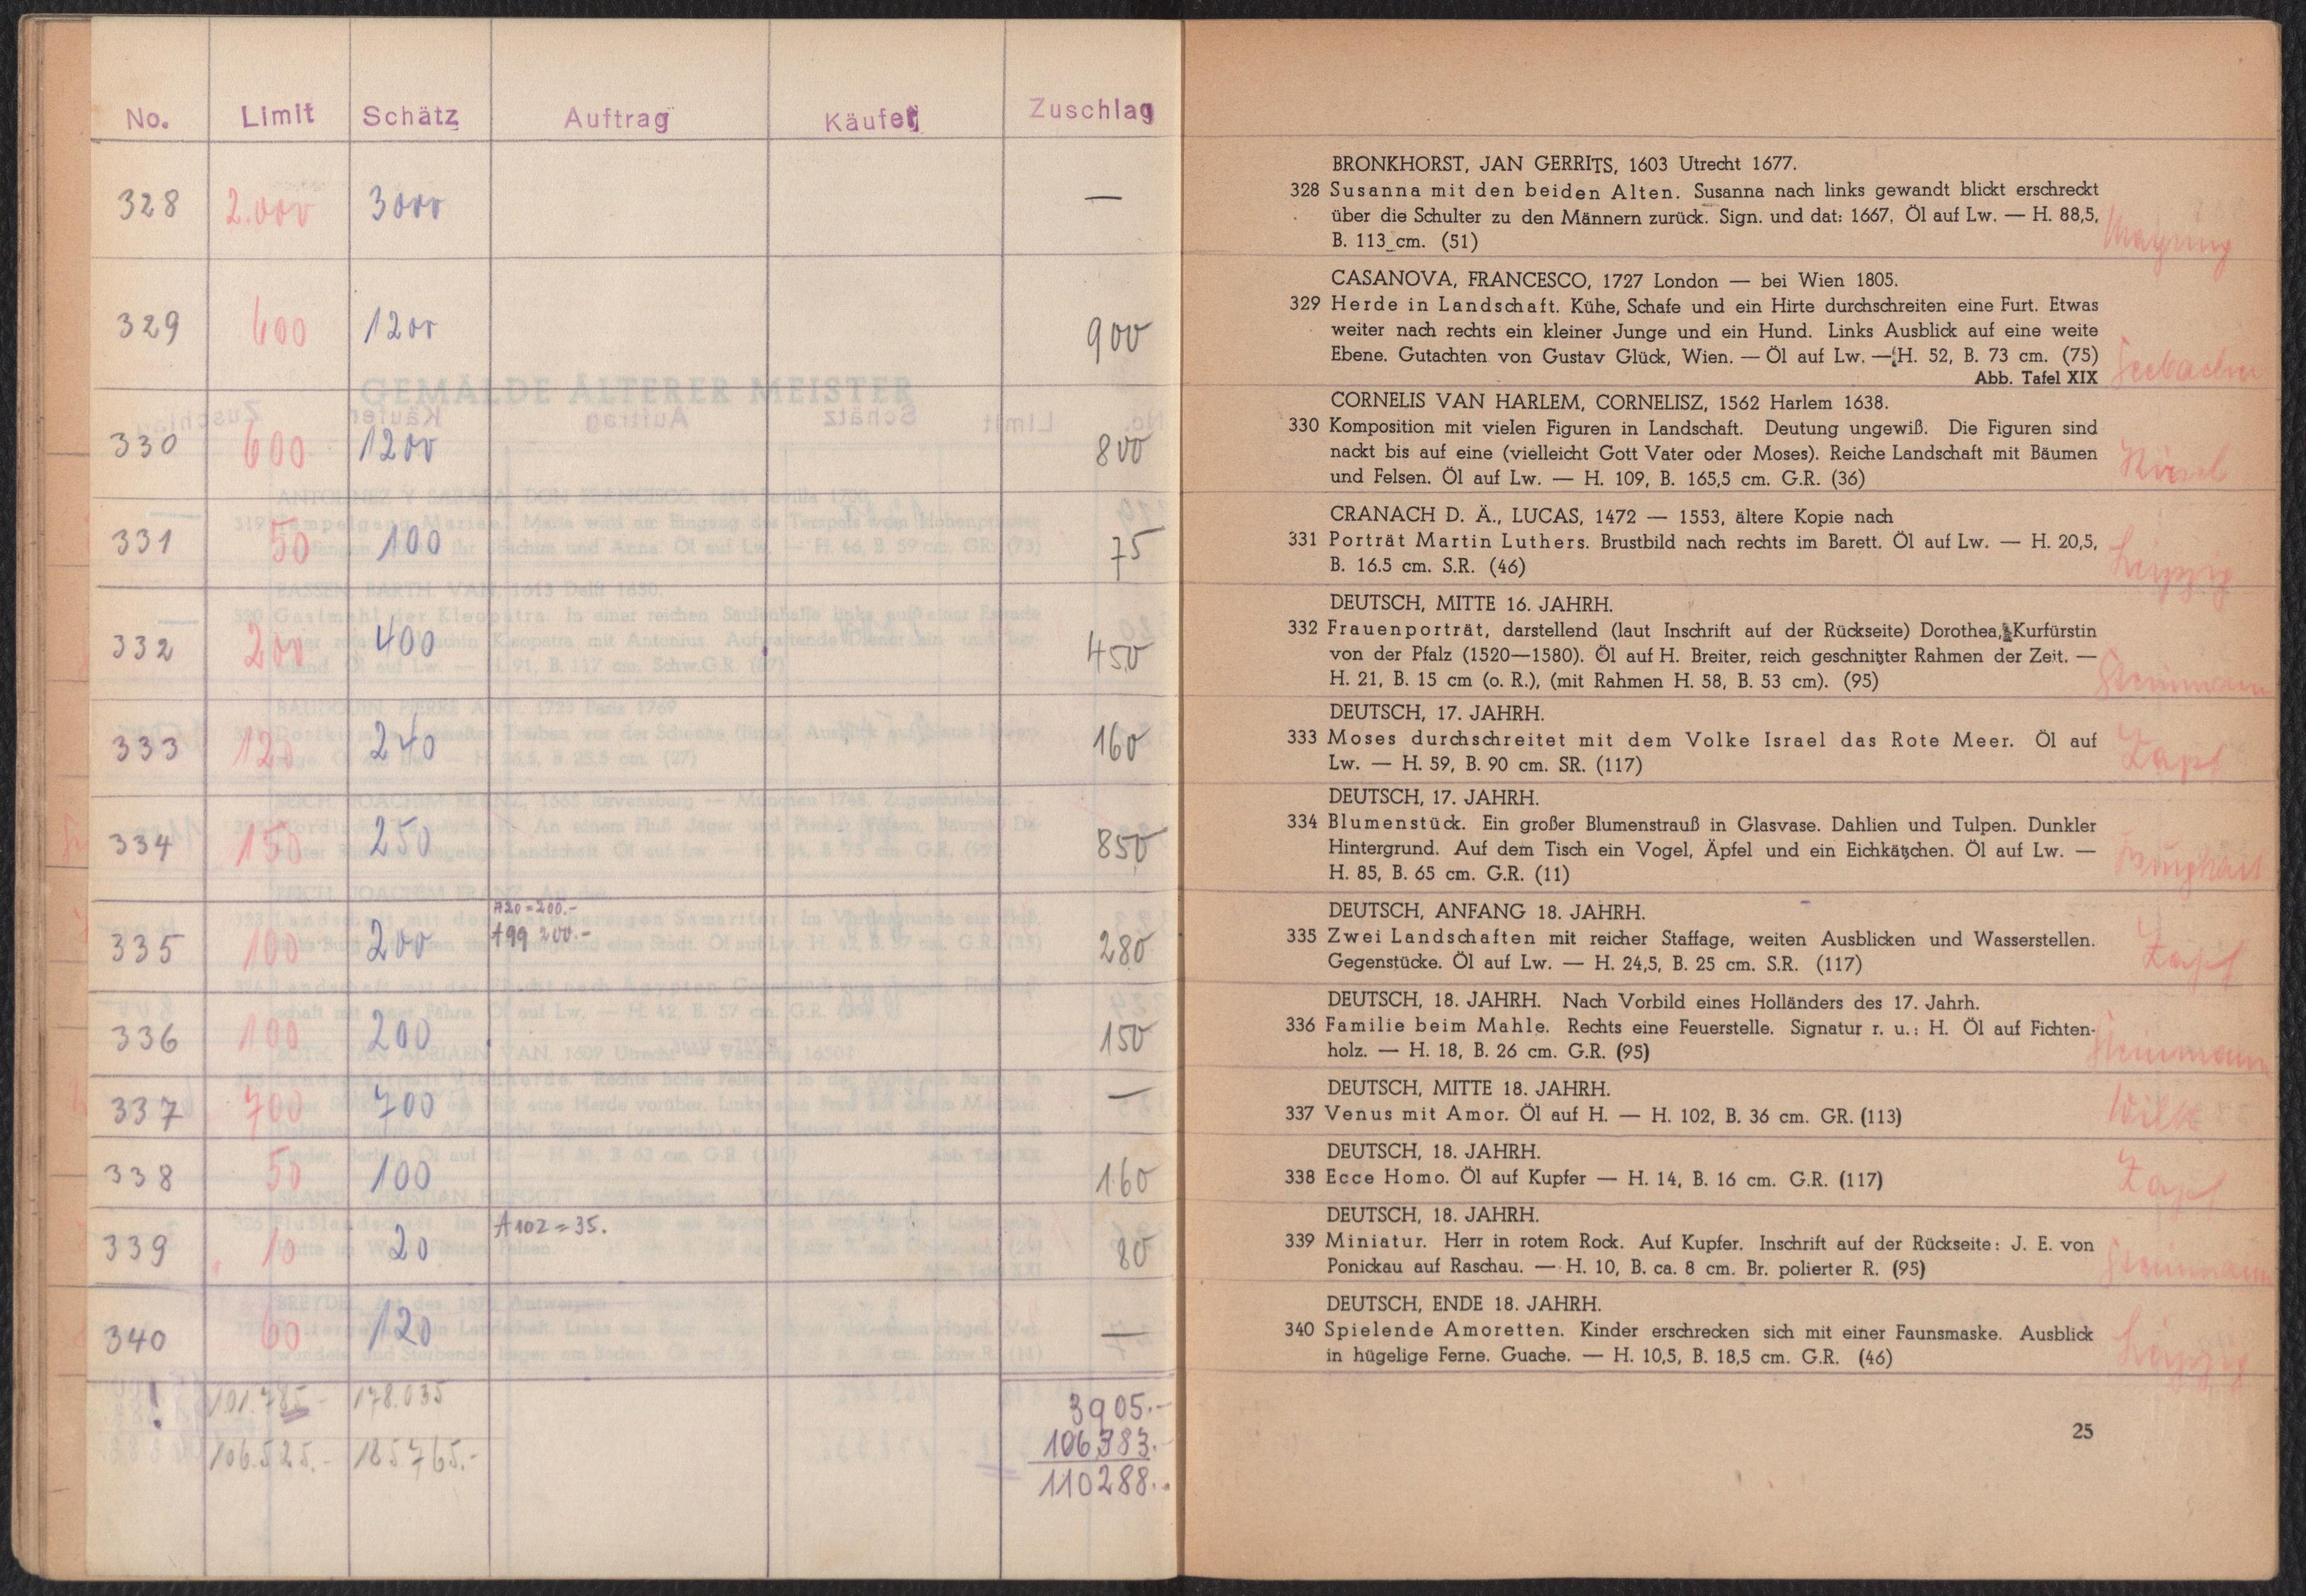 No. Limit Schätz Auftrag Käufer Zuschlag
328 2.000 3000 —
329 600 1200 900
330 600 1200 800
331 50 100 75
332 200 400 450
333 120 240 160
334 150 250 850
A20=200.-
335 100 200 A99 200.- 280
336 100 200 150
337 700 700 —
338 50 100 160
339 10 20 A102=35. 80
340 60 120 —
! 101.785- 178.035 3905.-
106.525.- 185765.- 106383.-
110288.-
BRONKHORST, JAN GERRITS, 1603 Utrecht 1677.
328 Susanna mit den beiden Alten. Susanna nach links gewandt blickt erschreckt
über die Schulter zu den Männern zurück. Sign. und dat: 1667. Öl auf Lw. — H. 88,5,
B. 113 cm. (51)
CASANOVA, FRANCESCO, 1727 London — bei Wien 1805.
329 Herde in Landschaft. Kühe, Schafe und ein Hirte durchschreiten eine Furt. Etwas
weiter nach rechts ein kleiner Junge und ein Hund. Links Ausblick auf eine weite
Ebene. Gutachten von Gustav Glück, Wien. — Öl auf Lw. — H. 52, B. 73 cm. (75)
Abb. Tafel XIX
CORNELIS VAN HARLEM, CORNELISZ, 1562 Harlem 1638.
330 Komposition mit vielen Figuren in Landschaft. Deutung ungewiß. Die Figuren sind
nackt bis auf eine (vielleicht Gott Vater oder Moses). Reiche Landschaft mit Bäumen
und Felsen. Öl auf Lw. — H. 109, B. 165,5 cm. G.R. (36)
CRANACH D. Ä., LUCAS, 1472 — 1553, ältere Kopie nach
331 Porträt Martin Luthers. Brustbild nach rechts im Barett. Öl auf Lw. — H. 20,5,
B. 16.5 cm. S.R. (46) Leipzig
DEUTSCH, MITTE 16. JAHRH.
332 Frauenporträt, darstellend (laut Inschrift auf der Rückseite) Dorothea, Kurfürstin
von der Pfalz (1520—1580). Öl auf H. Breiter, reich geschnitzter Rahmen der Zeit. —
H. 21, B. 15 cm (o. R.), (mit Rahmen H. 58, B. 53 cm). (95) Steinmann
DEUTSCH, 17. JAHRH.
333 Moses durchschreitet mit dem Volke Israel das Rote Meer. Öl auf
Lw. — H. 59, B. 90 cm. SR. (117) Zapf
DEUTSCH, 17. JAHRH.
334 Blumenstück. Ein großer Blumenstrauß in Glasvase. Dahlien und Tulpen. Dunkler
Hintergrund. Auf dem Tisch ein Vogel, Äpfel und ein Eichkätzchen. Öl auf Lw. —
H. 85, B. 65 cm. G.R. (11)
DEUTSCH, ANFANG 18. JAHRH.
335 Zwei Landschaften mit reicher Staffage, weiten Ausblicken und Wasserstellen.
Gegenstücke. Öl auf Lw. — H. 24,5, B. 25 cm. S.R. (117) Zapf
DEUTSCH, 18. JAHRH. Nach Vorbild eines Holländers des 17. Jahrh.
336 Familie beim Mahle. Rechts eine Feuerstelle. Signatur r. u.: H. Öl auf Fichten-
holz. — H. 18, B. 26 cm. G.R. (95) Steinmann
DEUTSCH, MITTE 18. JAHRH.
337 Venus mit Amor. Öl auf H. — H. 102, B. 36 cm. GR. (113)
DEUTSCH, 18. JAHRH.
338 Ecce Homo. Öl auf Kupfer — H. 14, B. 16 cm. G.R. (117) Zapf
DEUTSCH, 18. JAHRH.
339 Miniatur. Herr in rotem Rock. Auf Kupfer. Inschrift auf der Rückseite: J. E. von
Ponickau auf Raschau. — H. 10, B. ca. 8 cm. Br. polierter R. (95) Steinmann
DEUTSCH, ENDE 18. JAHRH.
340 Spielende Amoretten. Kinder erschrecken sich mit einer Faunsmaske. Ausblick
in hügelige Ferne. Guache. — H. 10,5, B. 18,5 cm. G.R. (46) Leipzig
25